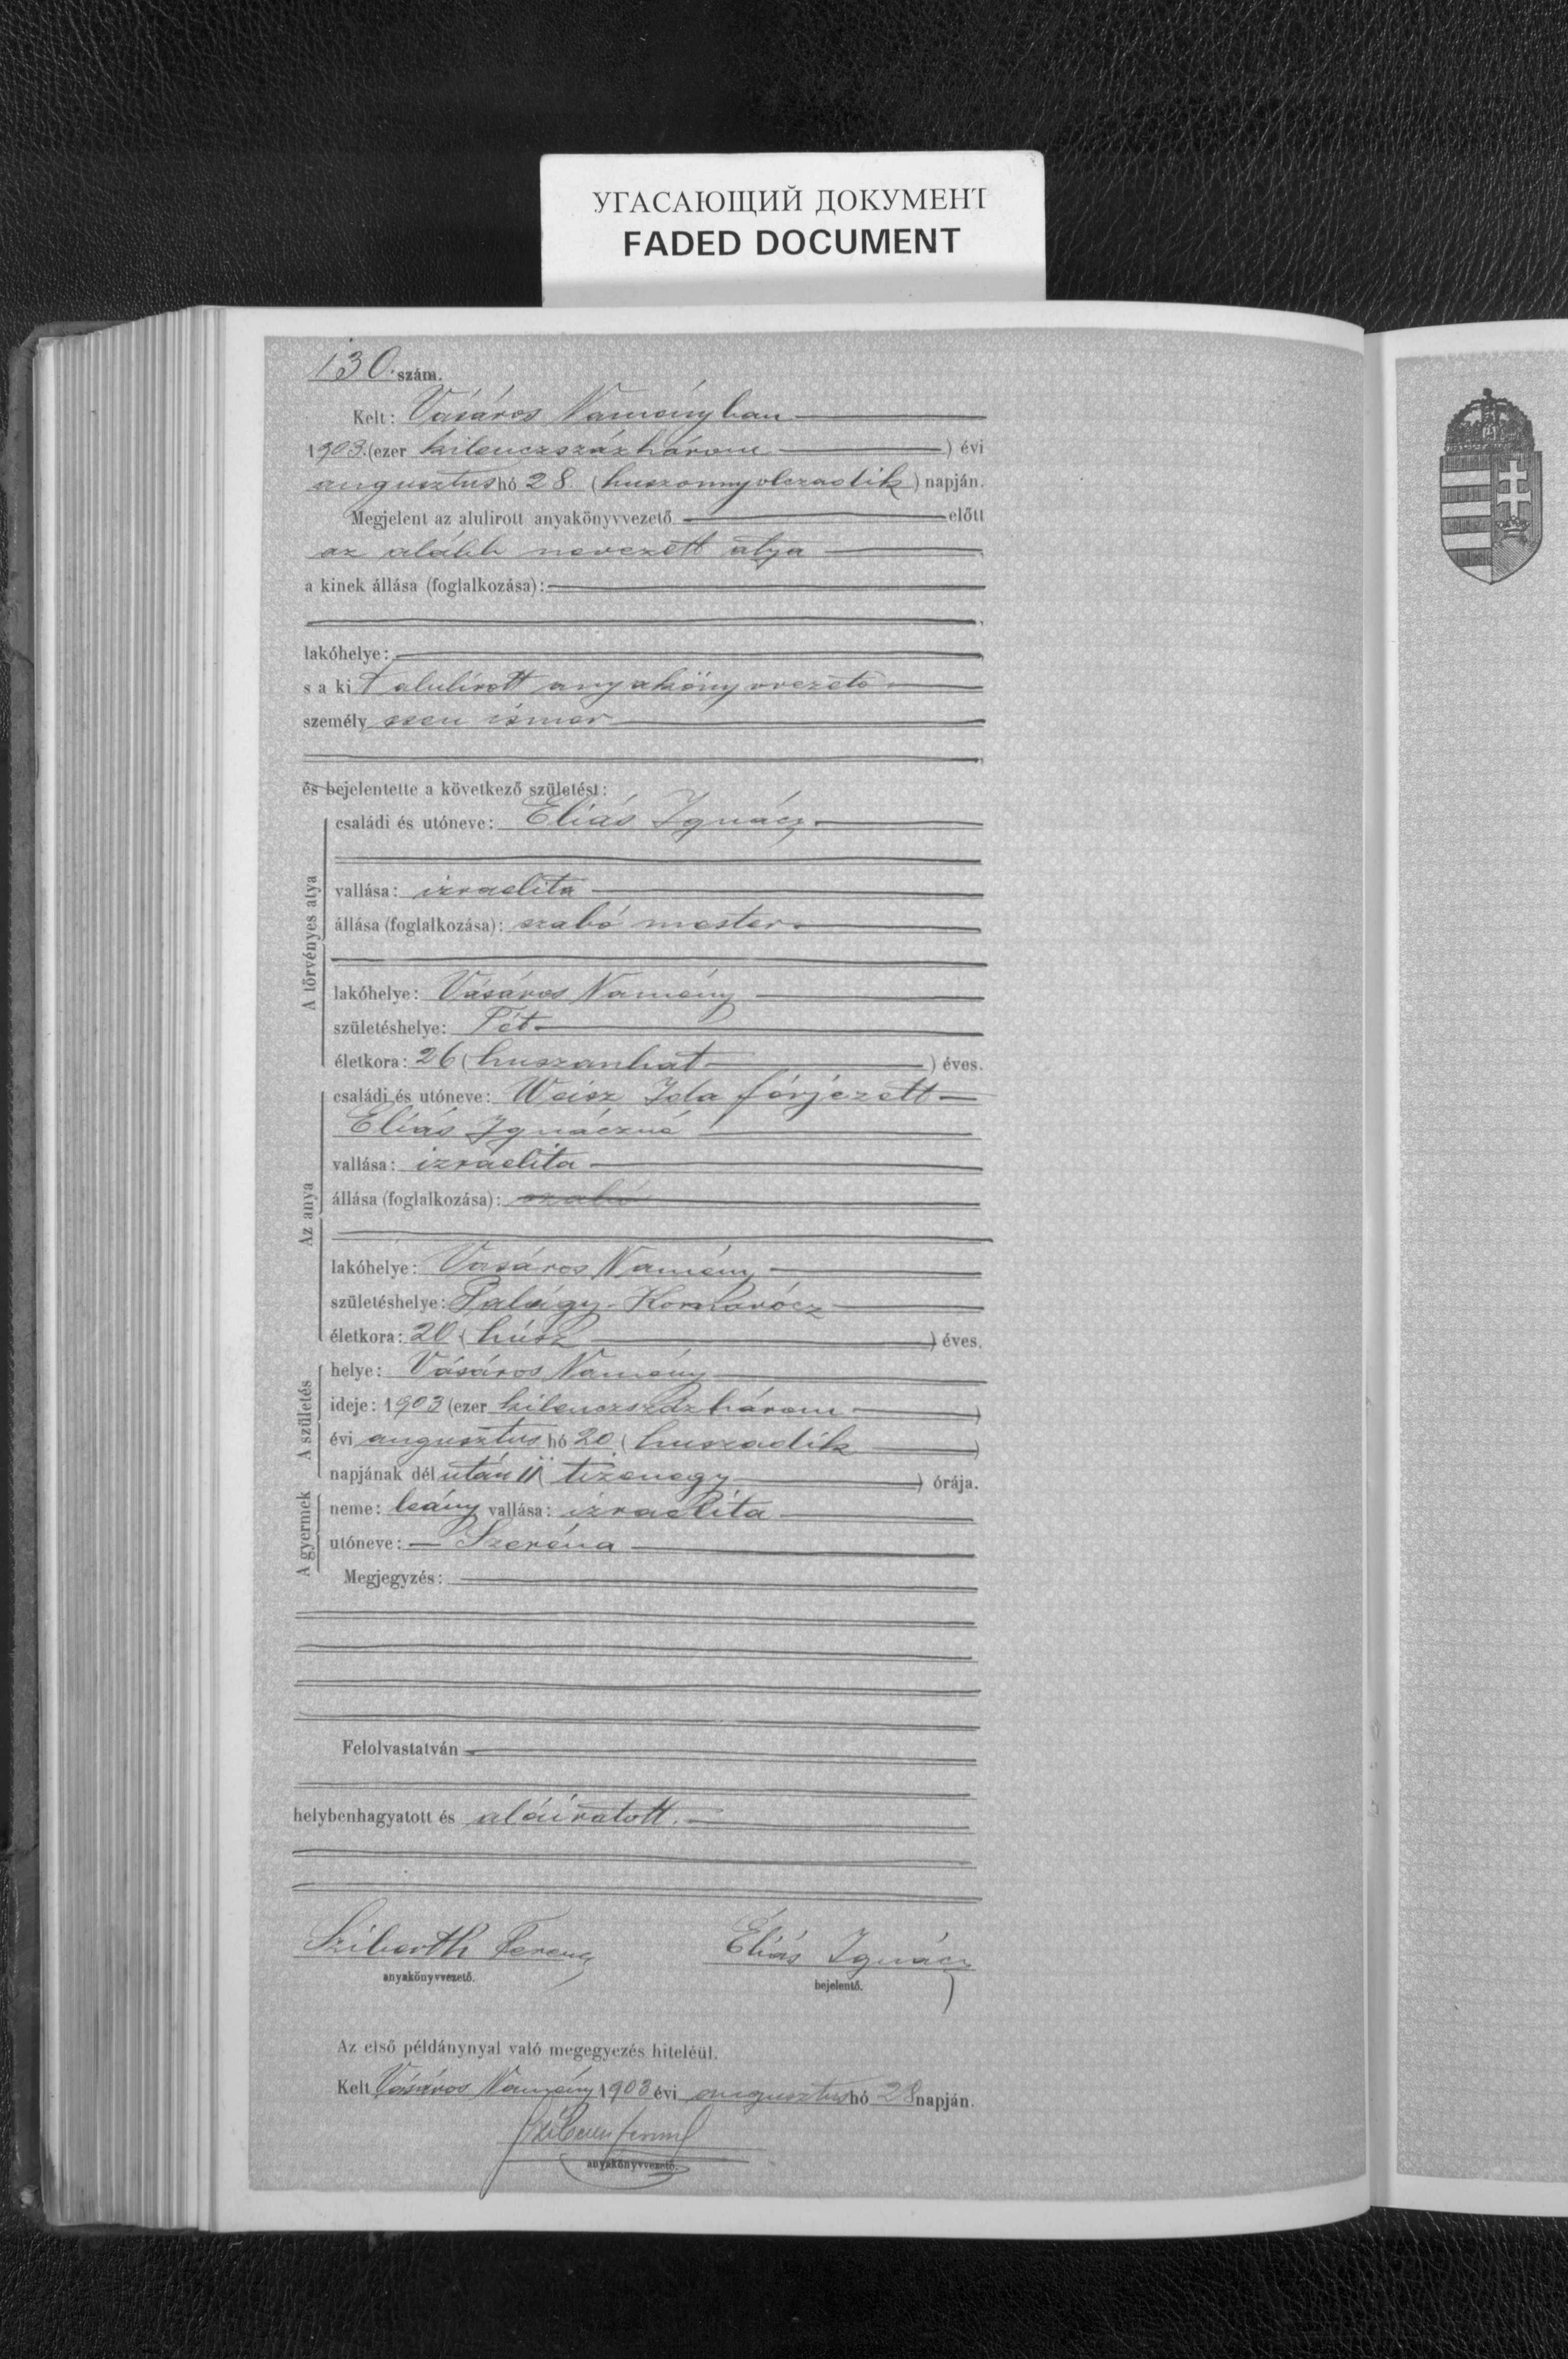 УГАСАЮЩИЙ ДОКУМЕНТ
FADED DOCUMENT
130. szám.
Kelt: Vásáros Naményban
1903. (ezer kilenczszázhárom) évi
augusztus hó 28. (huszonnyolczadik) napján.
Megjelent az alulirott anyakönyvvezető előtt
az alább nevezett atya
a kinek állása (foglalkozása):
lakóhelye:
s a ki t alulirott anyakönyvvezető
személy esen ismer
és bejelentette a következő születést:
A törvényes atya
családi és utóneve: Eliás Ignácz
vallása: izraelita
állása (foglalkozása): szabó mester
lakóhelye: Vásáros Namény
születéshelye: Pét
életkora: 26 (huszonhat) éves.
Az anya
családi és utóneve: Weisz Ida férjezett
Eliás Ignáczné
vallása: izraelita
állása (foglalkozása): szabó
lakóhelye: Vásáros Namény
születéshelye: Palágy-Komárócz
életkora: 20 (húsz) éves.
A születés
helye: Vásáros Namény
ideje: 1903 (ezer kilenczszázhárom)
évi augusztus hó 20. (huszadik)
napjának dél után 11 (tizenegy) órája.
A gyermek
neme: leány vallása: izraelita
utóneve: Szeréna
Megjegyzés:
Felolvastatván
helybenhagyatott és aláiratott.
Ferencz Eliás Ignácz
anyakönyvvezető. bejelentő.
Az első példánynyal való megegyezés hiteléül.
Kelt Vásáros Namény 1903 évi augusztus hó 28 napján.
anyakönyvvezető.